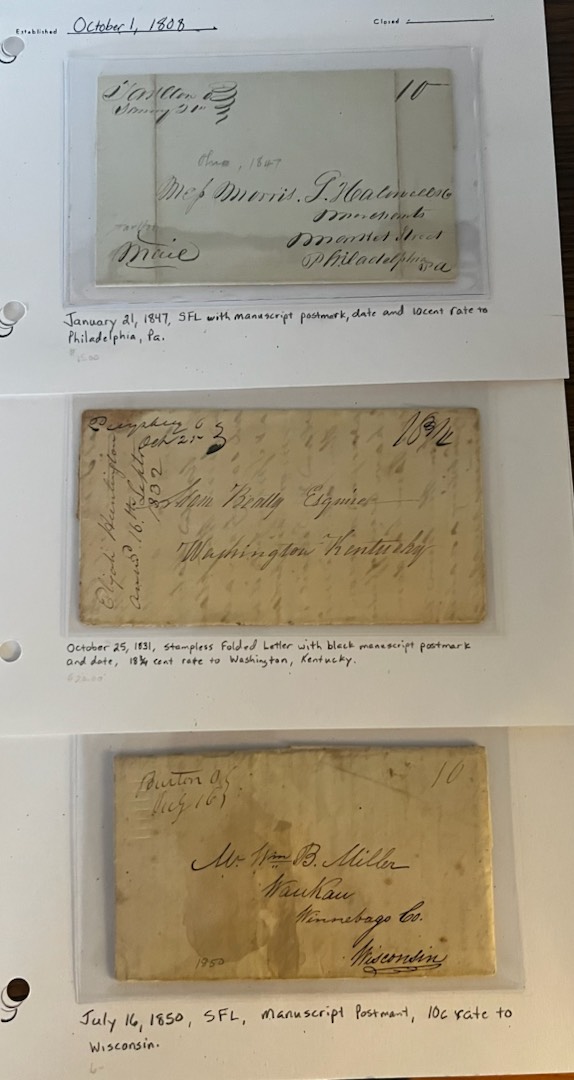 Established October 1, 1808 Closed
January 21st
10
Ohio, 1847
Mess Morris. T. Halowell &Co
Merchants
Market Street
Philadelphia
Pa
Mail
January 21, 1847, SFL with manuscript postmark, date and 10cent rate to
Philadelphia, Pa.
Perrysburg O
Oct 25
18 3/4
Elijah Huntington
ansd. 16th Septr
1832
Adam Beatty Esquire
Washington Kentucky
October 25, 1831, Stampless Folded Letter with black manuscript postmark
and date, 18 3/4 cent rate to Washington, Kentucky.
Burton O
July 16
10
Mr. Wm B. Miller
Waukau
Winnebago Co.
Wisconsin
1850
July 16, 1850, SFL, Manuscript Postmant, 10c rate to
Wisconsin.